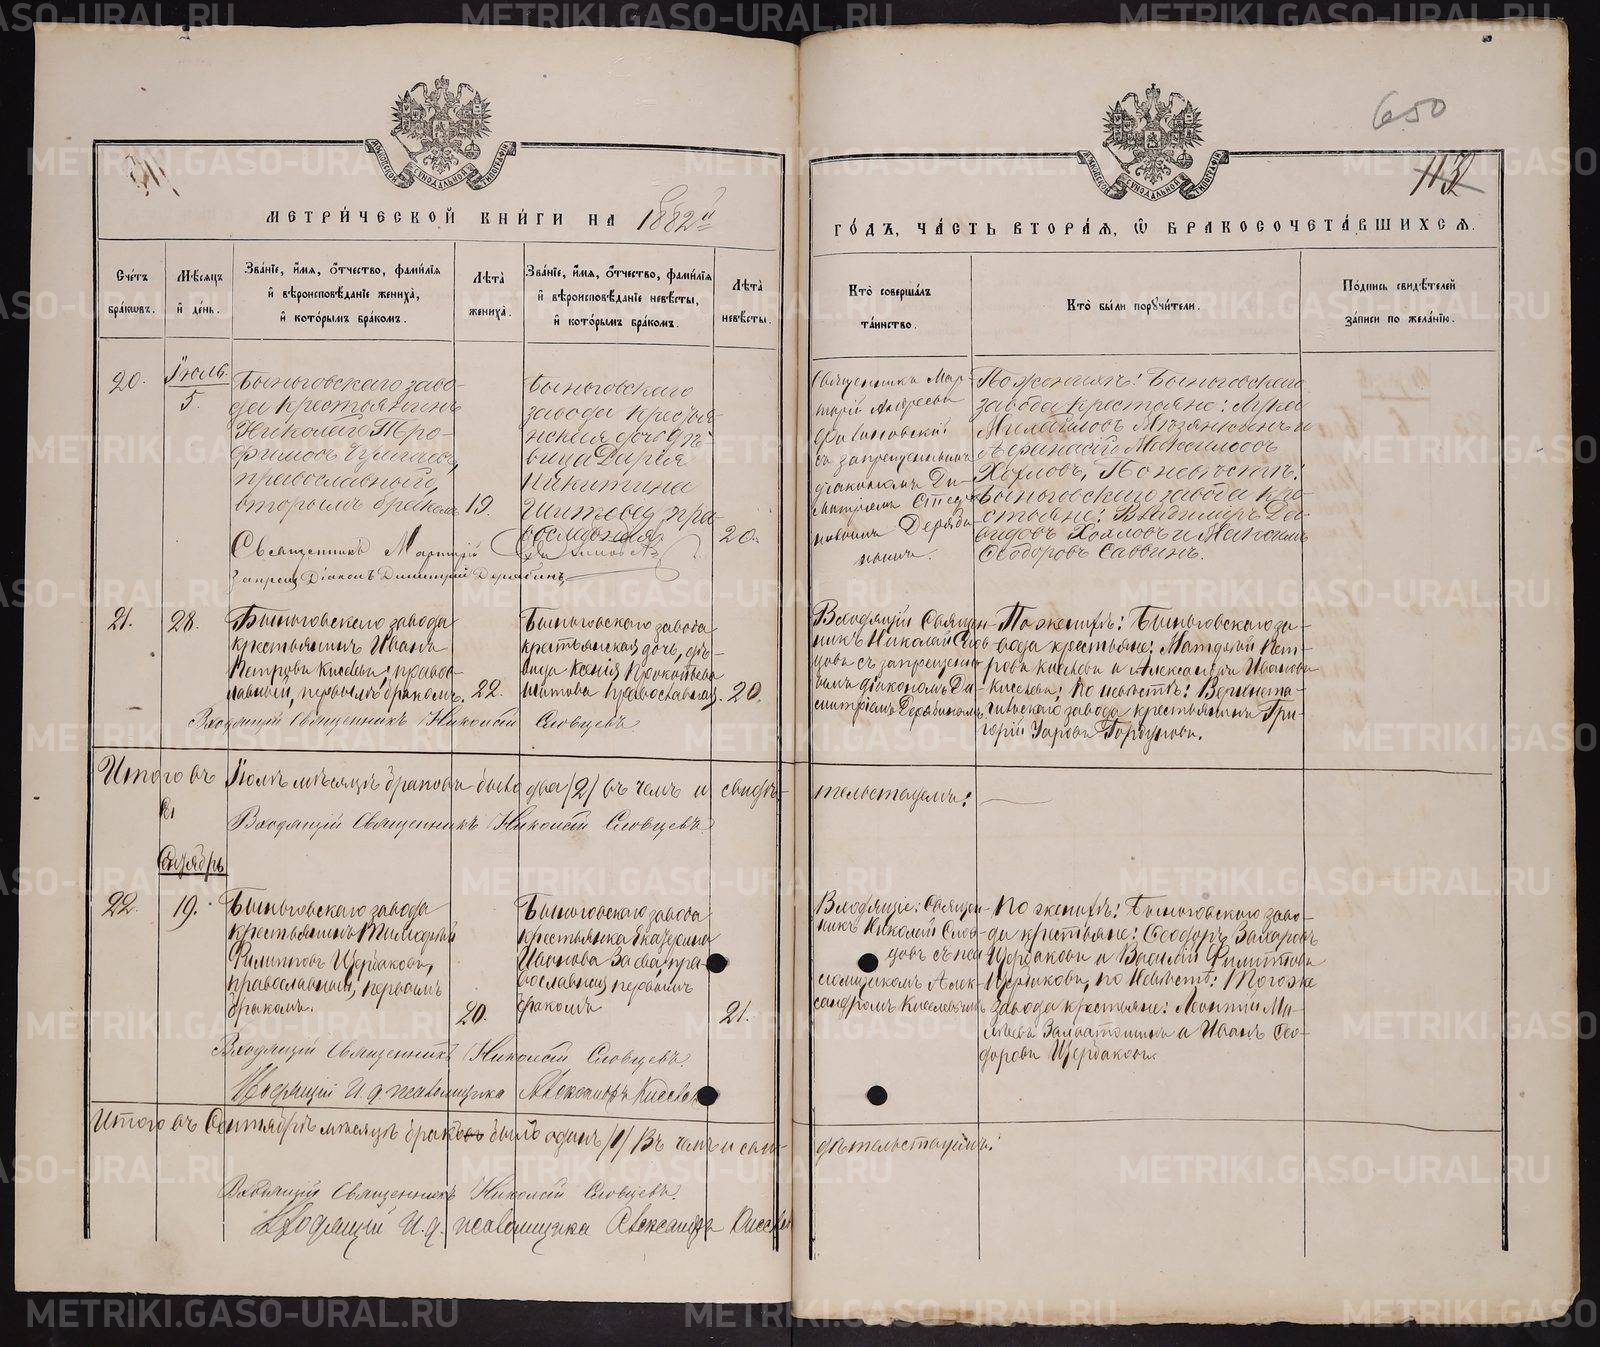 650
113
МЕТРИ́ЧЕСКОЙ КНИ́ГИ НА 1882й
ГО́ДЪ, ЧА́СТЬ ВТОРА́Я, Ѡ БРАКОСОЧЕТА́ВШИХСЯ.
Сче́тъ бра́кѡвъ.
Мѣ́сяцъ и҆ де́нь.
Зва́нїе, и҆́мя, ѻ҆́тчество, фами́лїя
и҆ вѣроисповѣ́данїе жениха̀,
и҆ кото́рымъ бра́комъ.
Лѣта̀ жениха̀.
Зва́нїе, и҆́мя, ѻ҆́тчество, фами́лїя
и҆ вѣроисповѣ́данїе невѣ́сты,
и҆ кото́рымъ бра́комъ.
Лѣта̀ невѣ́сты.
Кто̀ соверша́лъ
та́инство.
Кто̀ бы́ли порꙋчи́тели.
По́дпись свидѣ́телей
за́писи по жела́нїю.
20.
Іюль.
5.
Быньговскаго заво-
да крестьянинъ
Николай Тро-
фимовъ
православный,
вторымъ бракомъ
19.
Быньговскаго
завода крестья-
нская дочь дѣ-
вица Дарія
Никитина
Шитова, пра-
вославная
20.
Священникъ Мар-
Андреевъ
съ запрещеннымъ
діакономъ Ди-
митріемъ Стеф
новымъ Деряби-
нымъ.
По женихѣ: Быньговскаго
завода крестьяне: Лука
Михайловъ Мезянкинъ и
Афанасій
Хохловъ, По невѣстѣ:
Быньговскаго завода кре-
стьяне: Владимиръ Да-
видовъ Хохловъ и Максимъ
Ѳеодоровъ Саввинъ.
Священникъ
Запрещ Діаконъ Димитрій Дерябинъ
21.
28.
Быньговскаго завода
крестьянинъ Иванъ
Петровъ Киселевъ, право-
славный, первымъ бракомъ.
22.
Быньговскаго завода
крестьянская дочь, дѣ-
вица Ксенія Прокопьева
Шитова православная.
20.
Входящій Священ-
никъ Николай Слов-
цовъ съ запрещен-
нымъ діакономъ Ди-
митріемъ Дерябинымъ
По женихѣ: Быньговскаго за-
вода крестьяне: Матфей Пет-
ровъ Киселевъ и Александръ Ивановъ
Киселевъ; по невѣстѣ: Верхнета-
гильскаго завода крестьянинъ Гри-
горій Уаровъ Горбуновъ.
Входящій Священникъ Николай Словцевъ
Итого въ Іюлѣ мѣсяцѣ браковъ было два /2/ въ чемъ и свидѣ-
тельствуемъ:
Входящій Священникъ Николай Словцевъ
Сентябрь
22.
19.
Быньговскаго завода
крестьянинъ Тимофей
Филипповъ Щербаковъ,
православный, первымъ
бракомъ.
20.
Быньговскаго завода
крестьянка Екатерина
Иванова пра-
вославная первымъ
бракомъ
21.
Входящіе: Священ-
никъ Николай Слов-
цовъ съ пса-
ломщикомъ Алек-
сандромъ Киселевымъ
По женихѣ: Быньговскаго заво-
да крестьяне: Ѳеодоръ Захаровъ
Щербаковъ и Василій Филипповъ
Щербаковъ, по Невѣстѣ: Того же
завода крестьяне: Леонтій Ми-
и Иванъ Ѳео-
доровъ Щербаковъ.
Входящій Священникъ Николай Словцевъ.
Входящій И. д. псаломщика Александръ Киселев
Итого въ Сентябрѣ мѣсяцѣ браковъ былъ одинъ /1/ Въ чемъ и сви-
дѣтельствуемъ:
Входящій Священникъ Николай Словцевъ.
Входящій И. д. псаломщика Александръ Киселев
METRIKI.GASO-URAL.RU